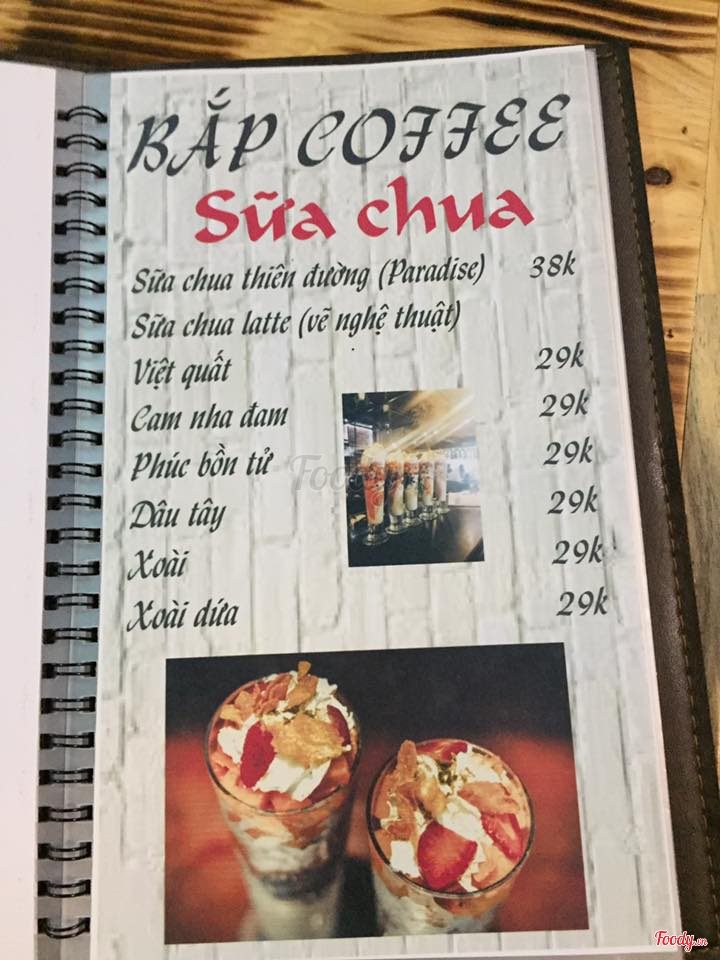 BẮP COFFEE
Sữa chua
Sữa chua thiên đường (Paradise) 38k
Sữa chua latte (vẽ nghệ thuật)
Việt quất 29k
Cam nha đam 29k
Phúc bồn tử 29k
Dâu tây 29k
Xoài 29k
Xoài dứa 29k
Foody
Foody.vn